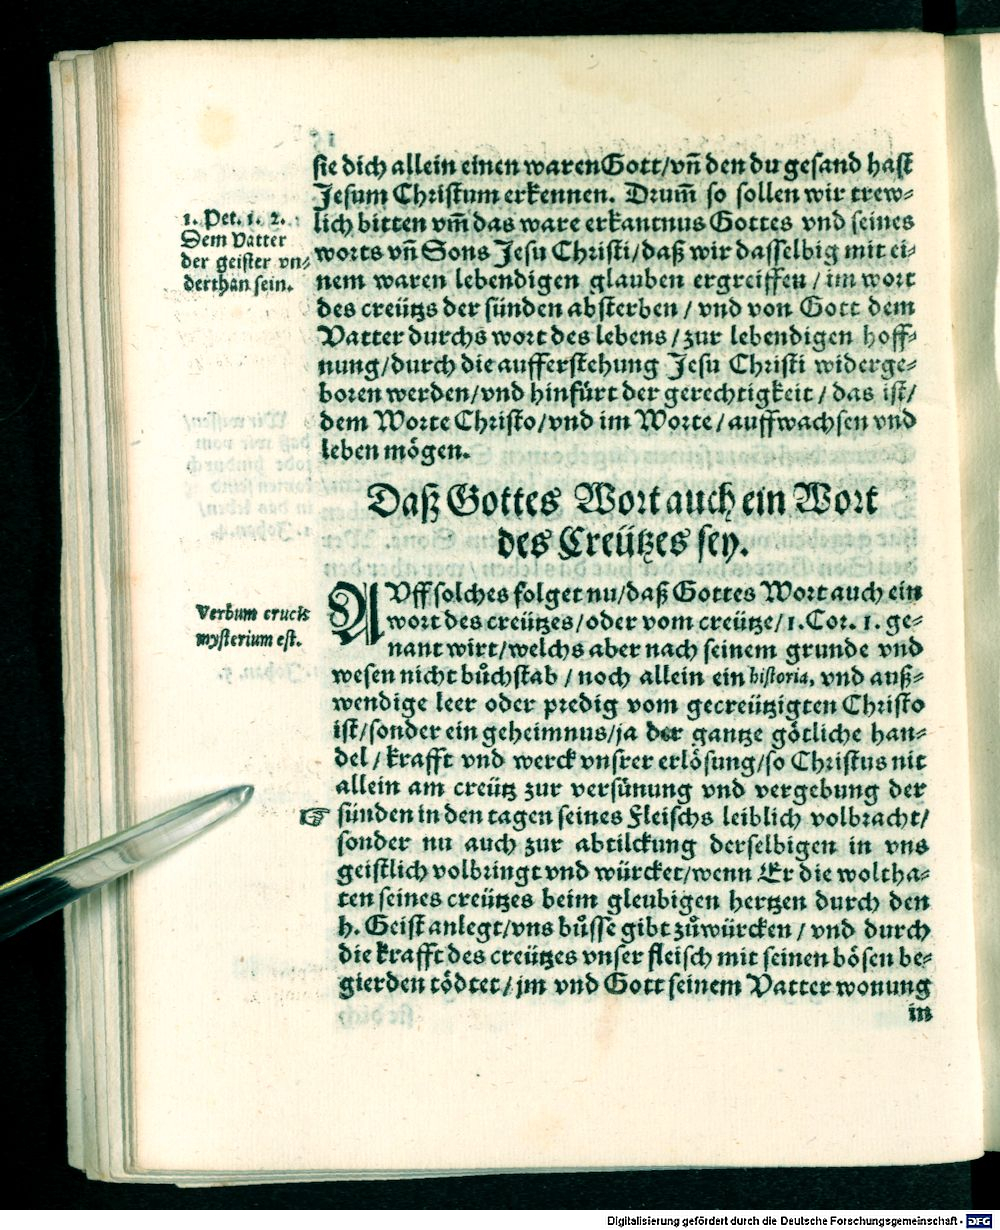 sie dich allein einen waren Gott/vñ den du gesand hast
Jesum Christum erkennen. Drum̃ so sollen wir trew-
lich bitten vm̃ das ware erkantnus Gottes vnd seines
worts vñ Sons Jesu Christi/daß wir dasselbig mit ei-
nem waren lebendigen glauben ergreiffen/im wort
des creützs der sünden absterben/vnd von Gott dem
Vatter durchs wort des lebens/zur lebendigen hoff-
nung/durch die aufferstehung Jesu Christi widerge-
boren werden/vnd hinfürt der gerechtigkeit/das ist/
dem Worte Christo/vnd im Worte/auffwachsen vnd
leben mögen.
1. Pet. 1. 2.
Dem Vatter
der geister vn-
derthan sein.
Daß Gottes Wort auch ein Wort
des Creützes sey.
AVff solches folget nu/daß Gottes Wort auch ein
wort des creützes/oder vom creütze/1. Cor. 1. ge-
nant wirt/welchs aber nach seinem grunde vnd
wesen nicht bůchstab/noch allein ein historia, vnd auß-
wendige leer oder predig vom gecreützigten Christo
ist/sonder ein geheimnus/ja der gantze götliche han-
del/krafft vnd werck vnsrer erlösung/so Christus nit
allein am creütz zur versünung vnd vergebung der
☞ sünden in den tagen seines Fleischs leiblich volbracht/
sonder nu auch zur abtilckung derselbigen in vns
geistlich volbringt vnd würcket/wenn Er die woltha-
ten seines creützes beim gleubigen hertzen durch den
h. Geist anlegt/vns bůsse gibt zůwürcken/vnd durch
die krafft des creützes vnser fleisch mit seinen bösen be-
gierden tödtet/jm vnd Gott seinem Vatter wonung
in
Verbum crucis
mysterium est.
Digitalisierung gefördert durch die Deutsche Forschungsgemeinschaft - DFG